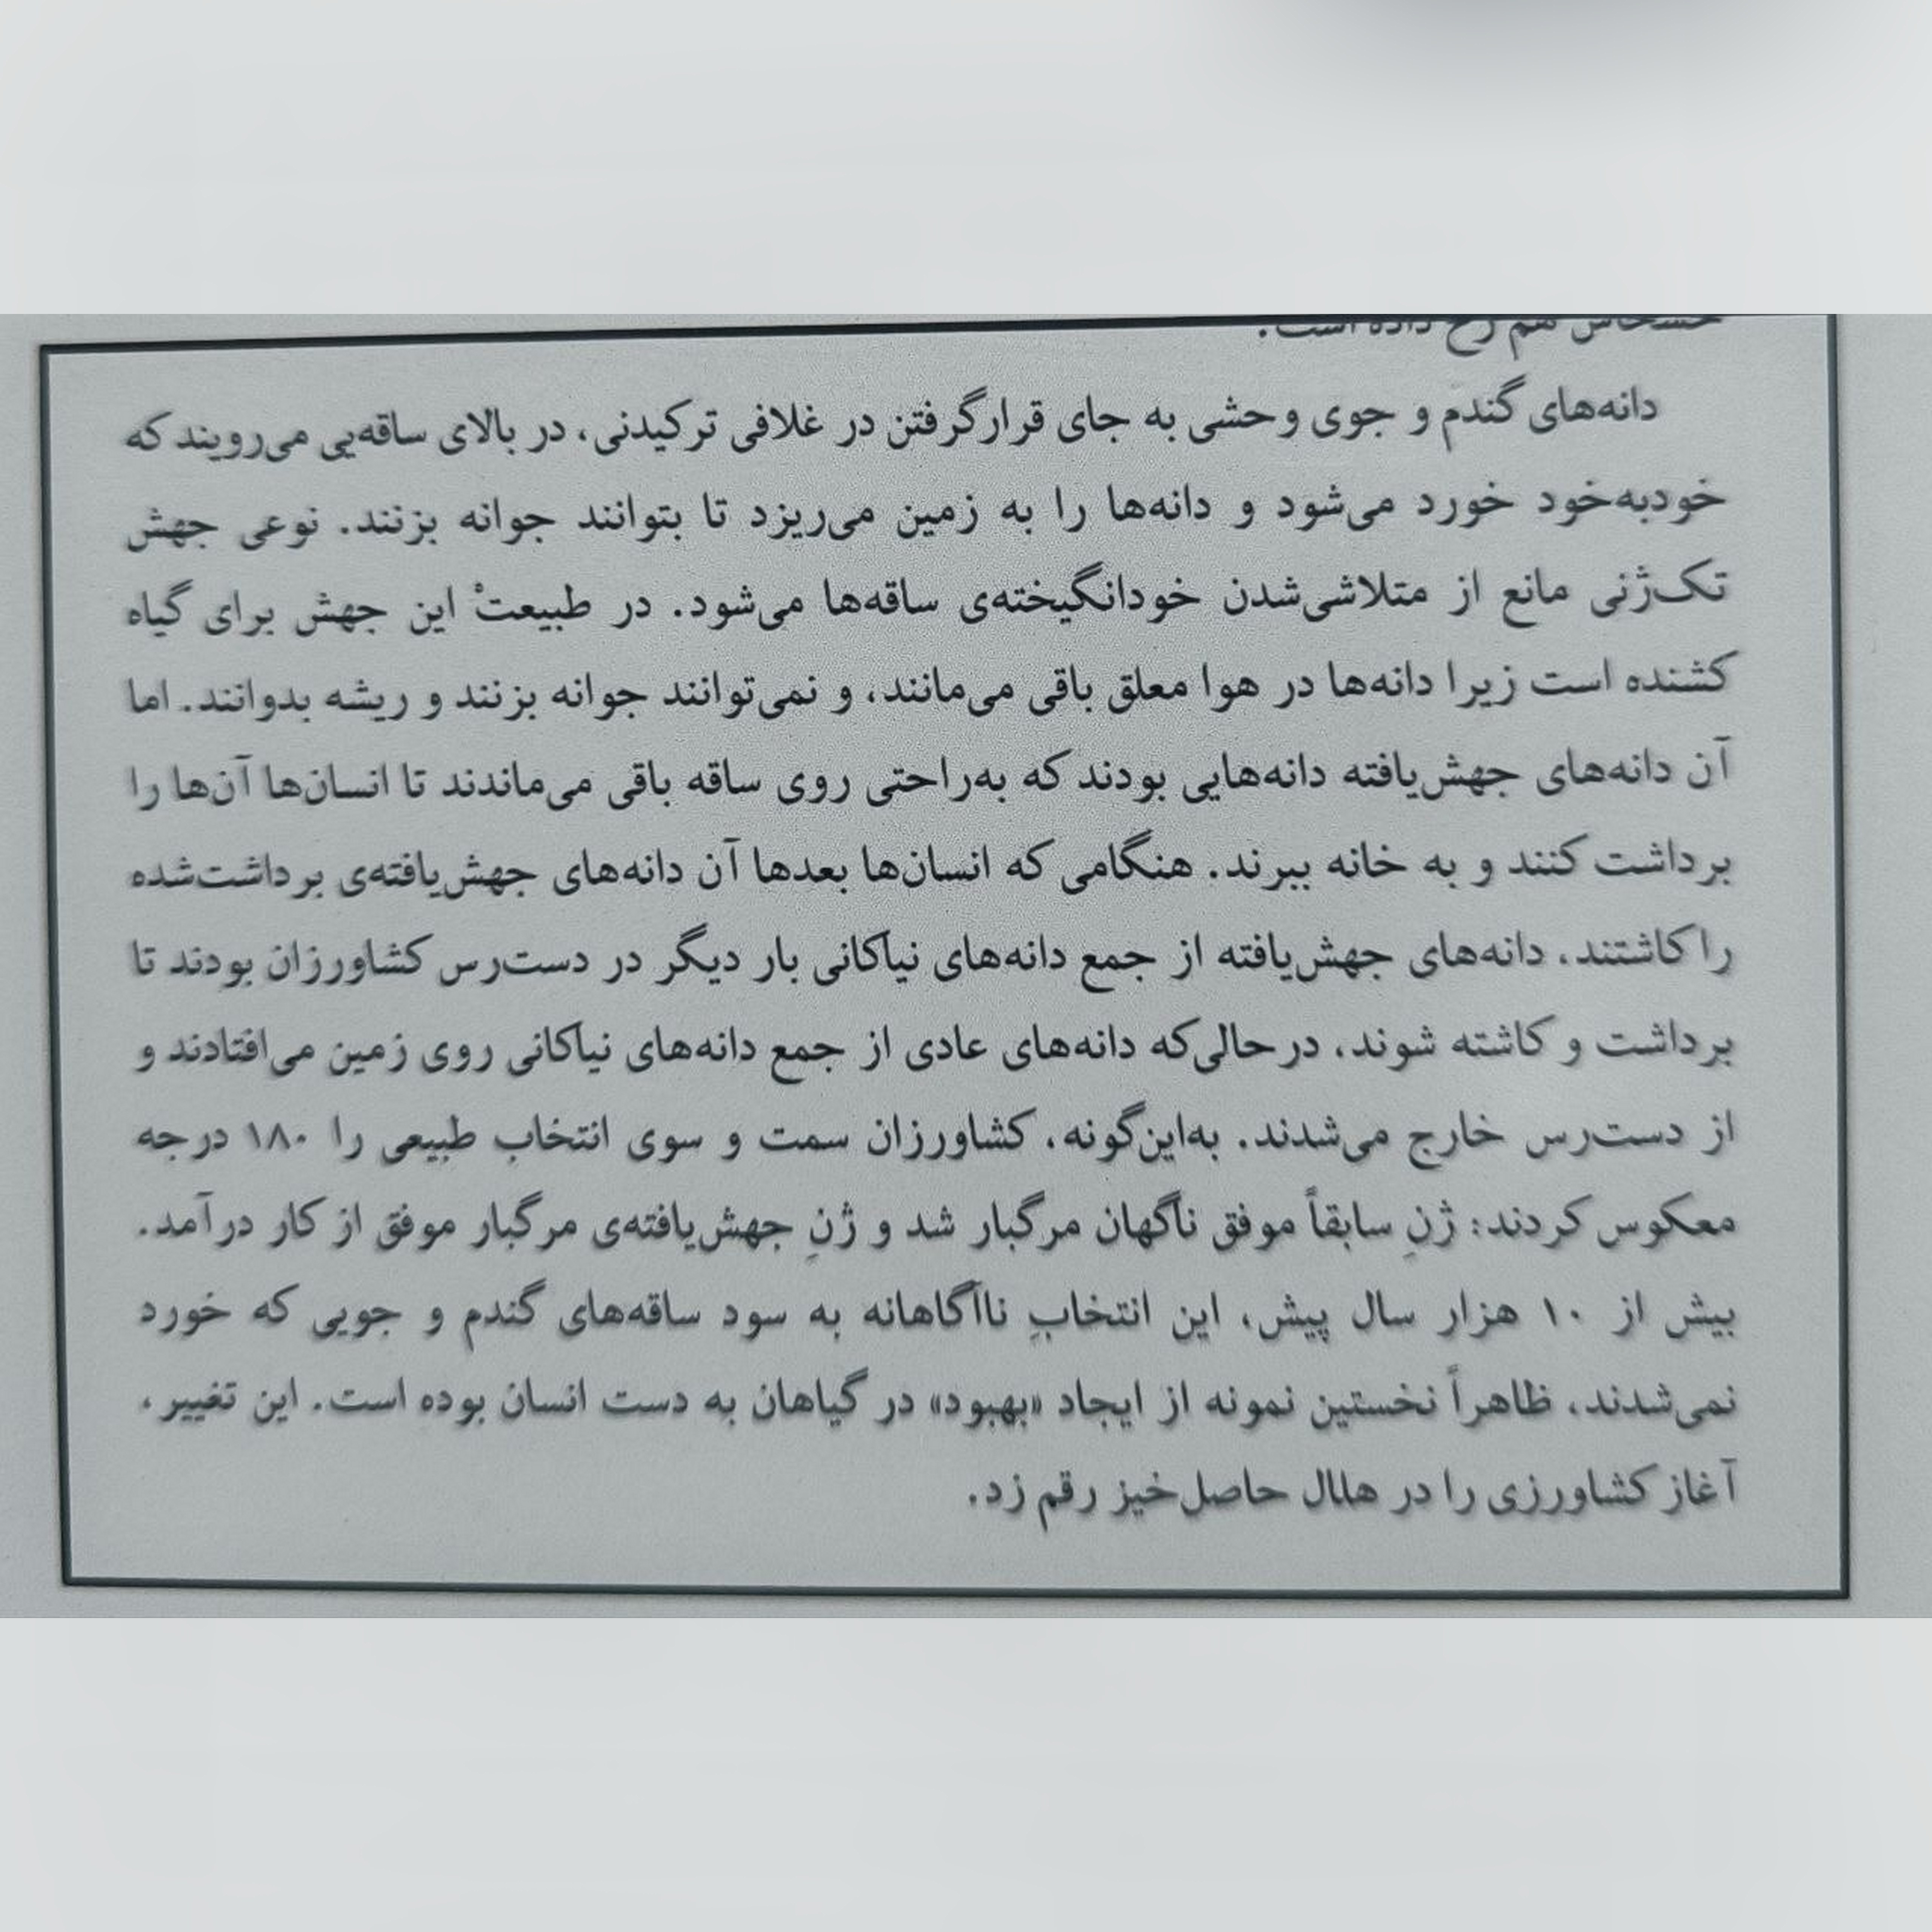 هم رخ داده است.
دانه‌های گندم و جوی وحشی به جای قرارگرفتن در غلافی ترکیدنی، در بالای ساقه‌یی می‌رویند که
خودبه‌خود خورد می‌شود و دانه‌ها را به زمین می‌ریزد تا بتوانند جوانه بزنند. نوعی جهش
تک‌ژنی مانع از متلاشی‌شدن خودانگیخته‌ی ساقه‌ها می‌شود. در طبیعتْ این جهش برای گیاه
کشنده است زیرا دانه‌ها در هوا معلق باقی می‌مانند، و نمی‌توانند جوانه بزنند و ریشه بدوانند. اما
آن دانه‌های جهش‌یافته دانه‌هایی بودند که به‌راحتی روی ساقه باقی می‌ماندند تا انسان‌ها آن‌ها را
برداشت کنند و به خانه ببرند. هنگامی که انسان‌ها بعدها آن دانه‌های جهش‌یافته‌ی برداشت‌شده
را کاشتند، دانه‌های جهش‌یافته از جمع دانه‌های نیاکانی بار دیگر در دست‌رس کشاورزان بودند تا
برداشت و کاشته شوند، درحالی‌که دانه‌های عادی از جمع دانه‌های نیاکانی روی زمین می‌افتادند و
از دست‌رس خارج می‌شدند. به‌این‌گونه، کشاورزان سمت و سوی انتخاب طبیعی را ۱۸۰ درجه
معکوس کردند: ژنِ سابقاً موفق ناگهان مرگبار شد و ژنِ جهش‌یافته‌ی مرگبار موفق از کار درآمد.
بیش از ۱۰ هزار سال پیش، این انتخابِ ناآگاهانه به سود ساقه‌های گندم و جویی که خورد
نمی‌شدند، ظاهراً نخستین نمونه از ایجاد «بهبود» در گیاهان به دست انسان بوده است. این تغییر،
آغاز کشاورزی را در هلال حاصل‌خیز رقم زد.